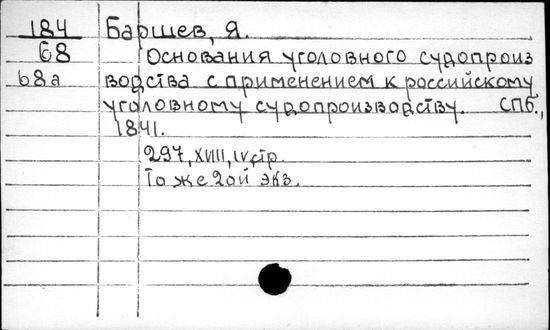 184 Баршев, Я.
68 Основания уголовного судопроиз
68а водства с применением к российскому
уголовному судопроизводству. СПб.,
1841.
297, XVIII, IV стр.
То же 2ой экз.